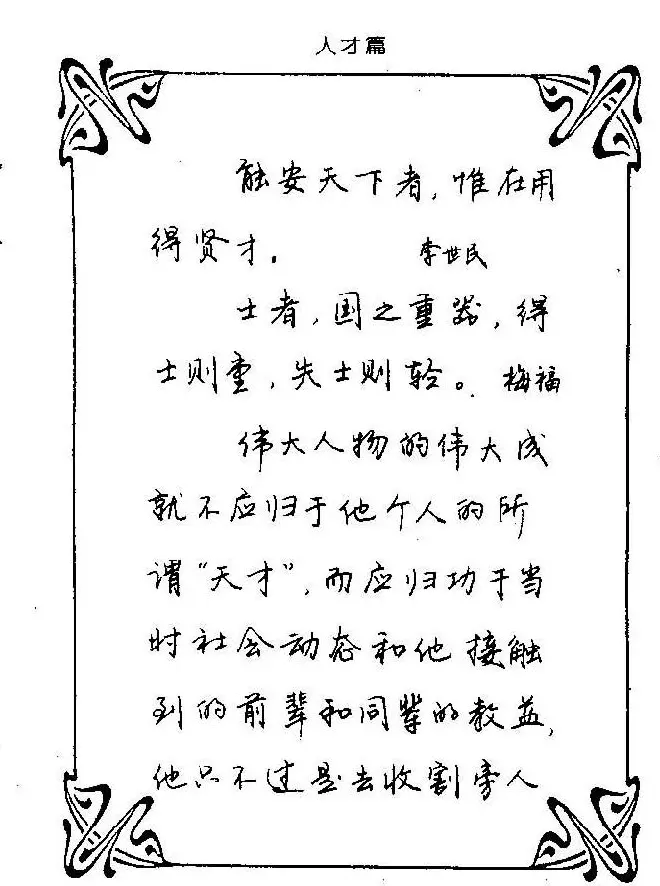 人才篇
能安天下者，惟在用
得贤才。 李世民
士者，国之重器，得
士则重，失士则轻。 梅福
伟大人物的伟大成
就不应归于他个人的所
谓“天才”，而应归功于当
时社会动态和他接触
到的前辈和同辈的教益，
他只不过是去收割旁人